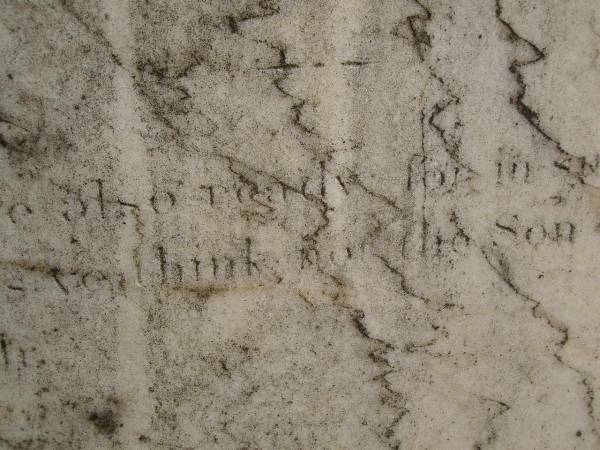 e also ready for in su
s ye think not the Son